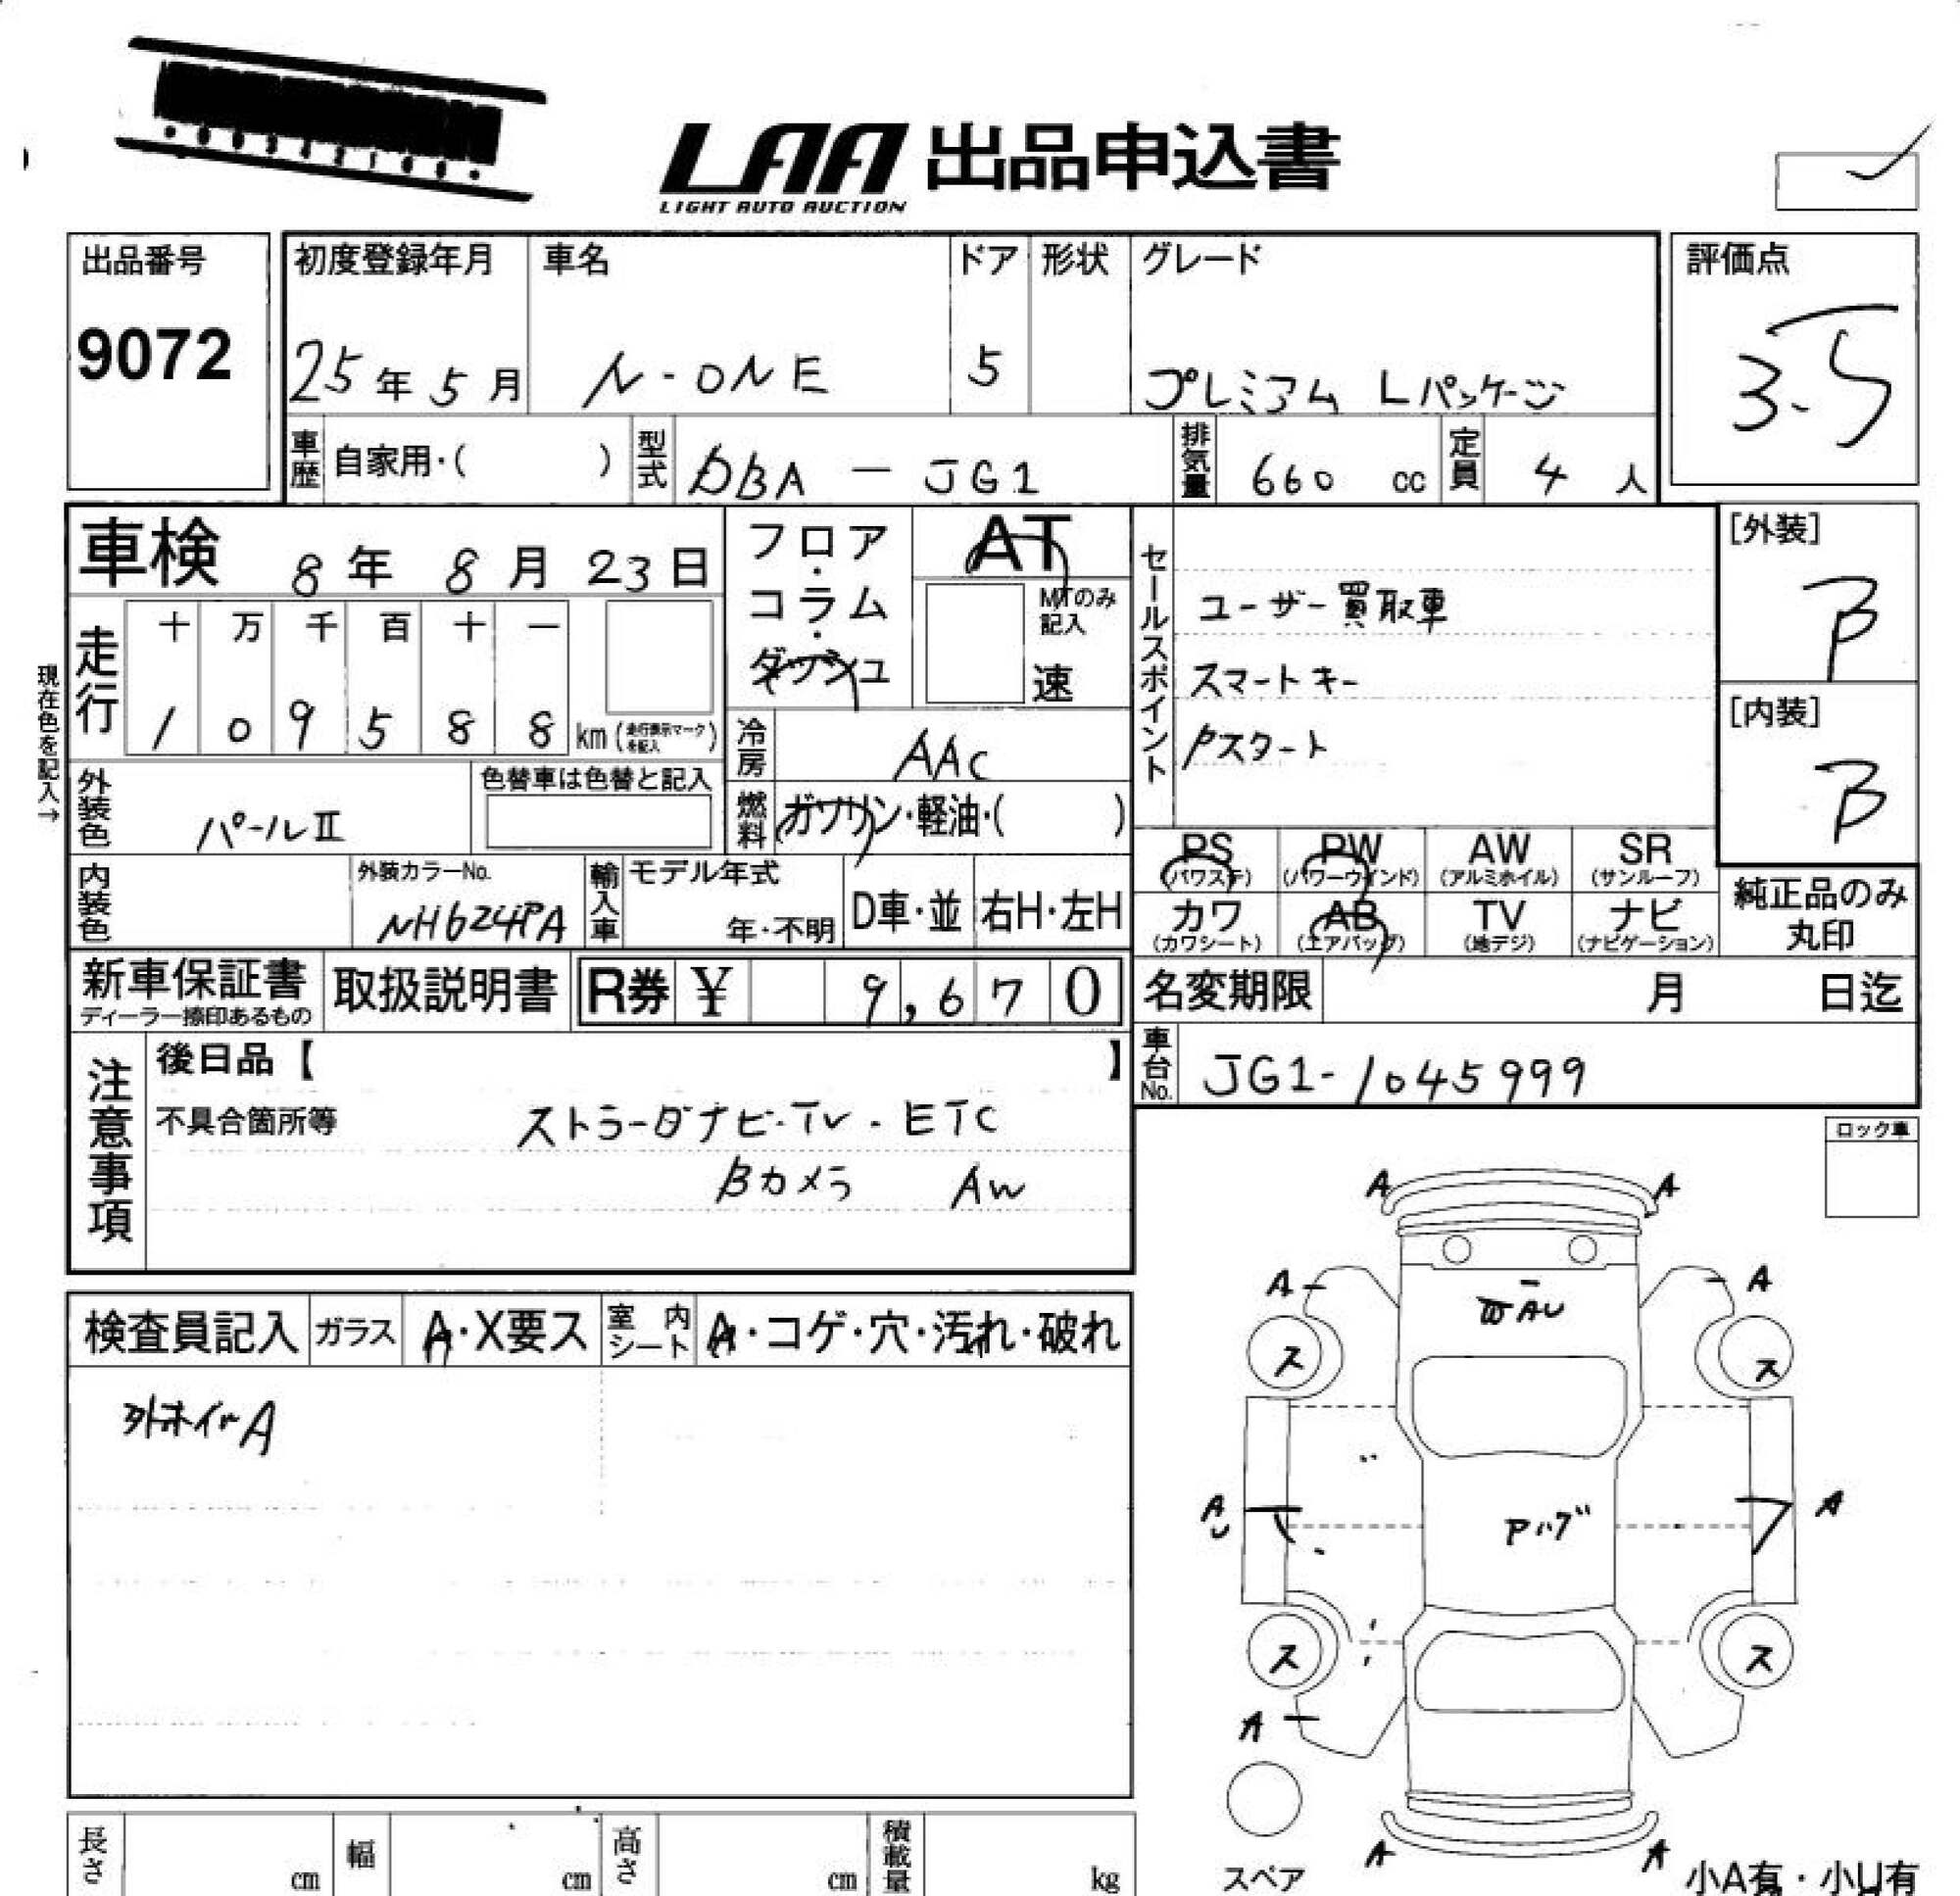 LAA 出品申込書
LIGHT AUTO AUCTION
出品番号
9072
初度登録年月 車名 ドア 形状 グレード
25年5月 N-ONE 5 プレミアム Lパッケージ
評価点
3.5
車歴 自家用・( ) 型式 DBA-JG1 排気量 660 cc 定員 4 人
車検 8年 8月 23日
フロア・コラム・ダッシュ
AT
MTのみ記入
速
セールスポイント
ユーザー買取車
スマートキー
Pスタート
[外装]
B
[内装]
B
現在色を記入→
走行 十 万 千 百 十 一
1 0 9 5 8 8 km (走行表示マークを記入)
冷房 AAC
燃料 ガソリン・軽油・( )
外装色 パールII
色替車は色替と記入
内装色
外装カラーNo.
NH624PA
輸入車 モデル年式
年・不明
D車・並 右H・左H
PS (パワステ) PW (パワーウインド) AW (アルミホイル) SR (サンルーフ)
カワ (カワシート) AB (エアバッグ) TV (地デジ) ナビ (ナビゲーション)
純正品のみ丸印
新車保証書
ディーラー捺印あるもの
取扱説明書
R券 ¥ 9,670
名変期限 月 日迄
車台No. JG1-1045999
注意事項
後日品【 】
不具合箇所等 ストラーダナビ・TV・ETC
Bカメラ AW
ロック車
検査員記入 ガラス A・X要ス 室内シート A・コゲ・穴・汚れ・破れ
外ホイルA
A A
A A
AU
ス ス
AU A
ス ス
A
A A
スペア
小A有・小U有
長さ cm 幅 cm 高さ cm 積載量 kg